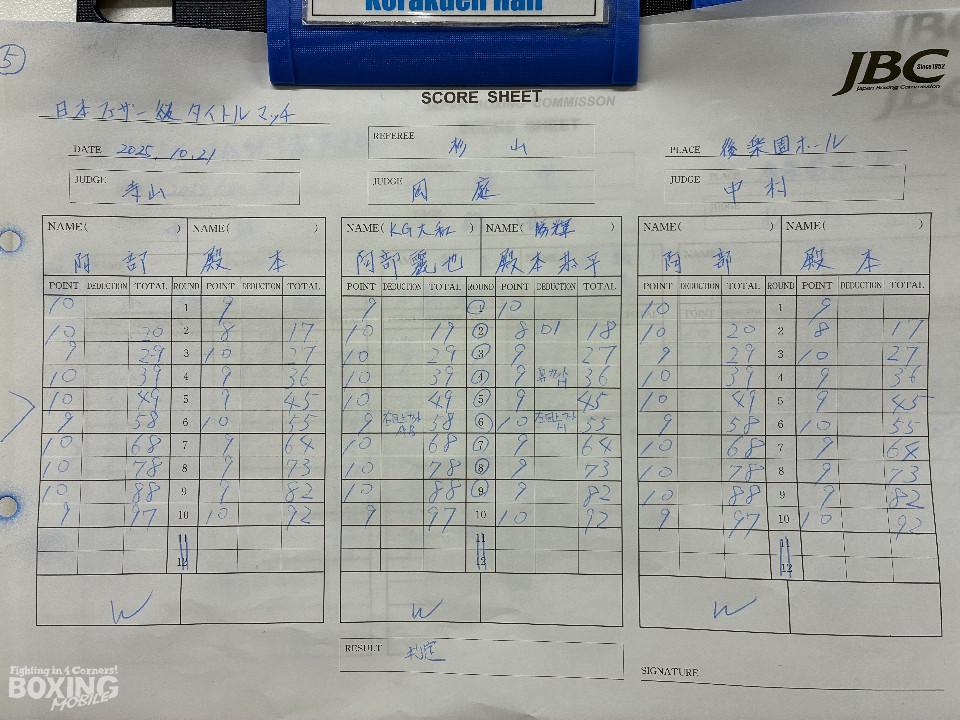 Korakuen Hall
5
JBC
Since1952
Japan Boxing Commission
SCORE SHEET
日本フェザー級タイトルマッチ
DATE 2025.10.21
REFEREE 杉山
PLACE 後楽園ホール
JUDGE 寺山
JUDGE 岡庭
JUDGE 中村
NAME( ) NAME( )
阿部 殿本
NAME(KG大和) NAME(勝輝)
阿部麗也 殿本恭平
NAME( ) NAME( )
阿部 殿本
POINT DEDUCTION TOTAL ROUND POINT DEDUCTION TOTAL
10 1 9
10 20 2 8 17
9 29 3 10 27
10 39 4 9 36
10 49 5 9 45
9 58 6 10 55
10 68 7 9 64
10 78 8 9 73
10 88 9 9 82
9 97 10 10 92
11
12
W
POINT DEDUCTION TOTAL ROUND POINT DEDUCTION TOTAL
9 1 10
10 19 2 8 D1 18
10 29 3 9 27
10 39 4 9 鼻カットH 36
10 49 5 9 45
9 右目上カット 58 6 10 右目上カットH 55
10 68 7 9 64
10 78 8 9 73
10 88 9 9 82
9 97 10 10 92
11
12
W
POINT DEDUCTION TOTAL ROUND POINT DEDUCTION TOTAL
10 1 9
10 20 2 8 17
9 29 3 10 27
10 39 4 9 36
10 49 5 9 45
9 58 6 10 55
10 68 7 9 64
10 78 8 9 73
10 88 9 9 82
9 97 10 10 92
11
12
W
RESULT 判定
SIGNATURE
Fighting in 4 Corners!
BOXING
MOBILE